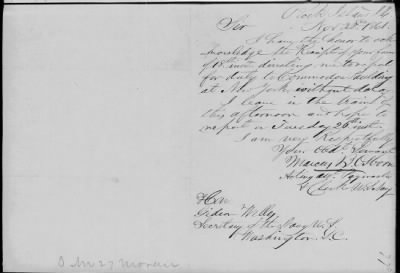 Rock Island Ill
Nov 23d 1861
Sir
I have the honor to ack
nowledge the Receipt of your favor
of 18th inst directing me to report
for duty to Commodore Paulding
at New York without delay
I leave in the train of
this afternoon and hope to
report on Tuesday 26th inst
I am very Respectfully
Your Obdt Servant
Marcus
Acting Asst Paymaster
Hon
Gideon Welles
Secretary of the Navy U.S.
Washington D.C.